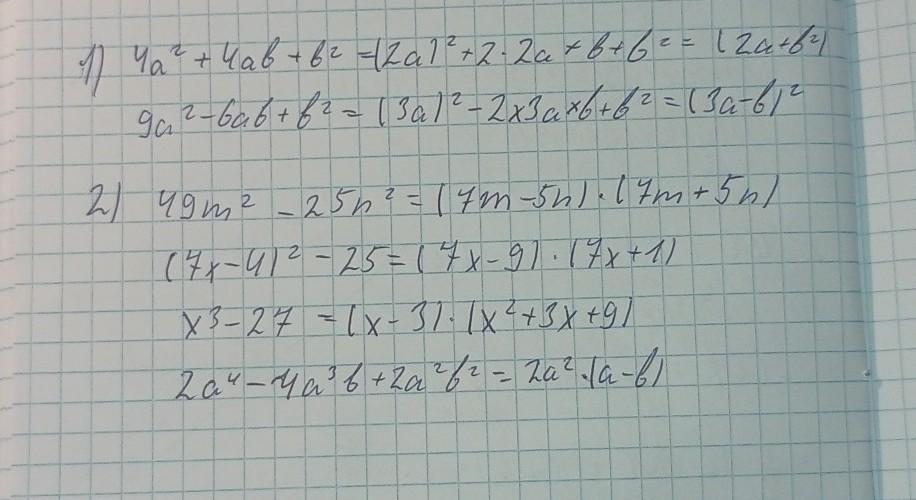 1) 4a² + 4ab + b² = (2a)² + 2 · 2a × b + b² = (2a + b²)
9a² - 6ab + b² = (3a)² - 2 × 3a × b + b² = (3a - b)²
2) 49m² - 25n² = (7m - 5n) · (7m + 5n)
(7x - 4)² - 25 = (7x - 9) · (7x + 1)
x³ - 27 = (x - 3) · (x² + 3x + 9)
2a⁴ - 4a³b + 2a²b² = 2a² · (a - b)